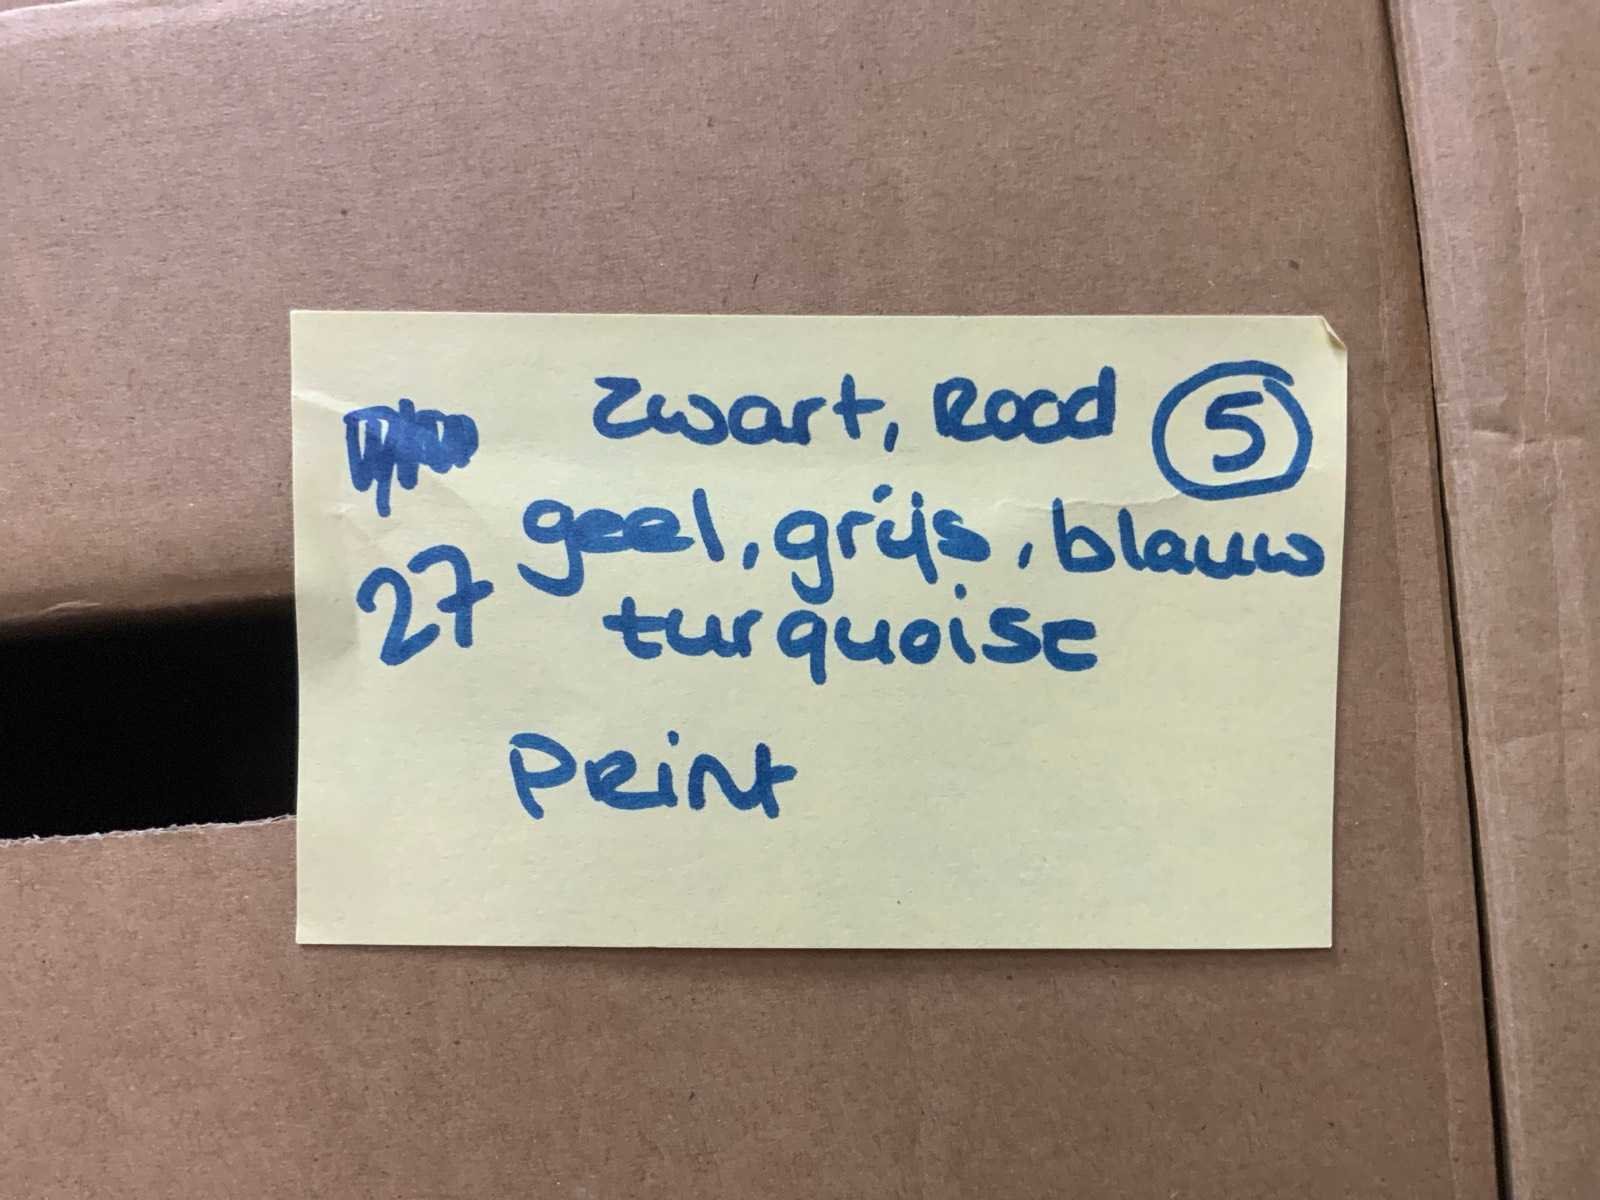 Zwart, Rood 5
geel, grijs, blauw
27 turquoise
Print